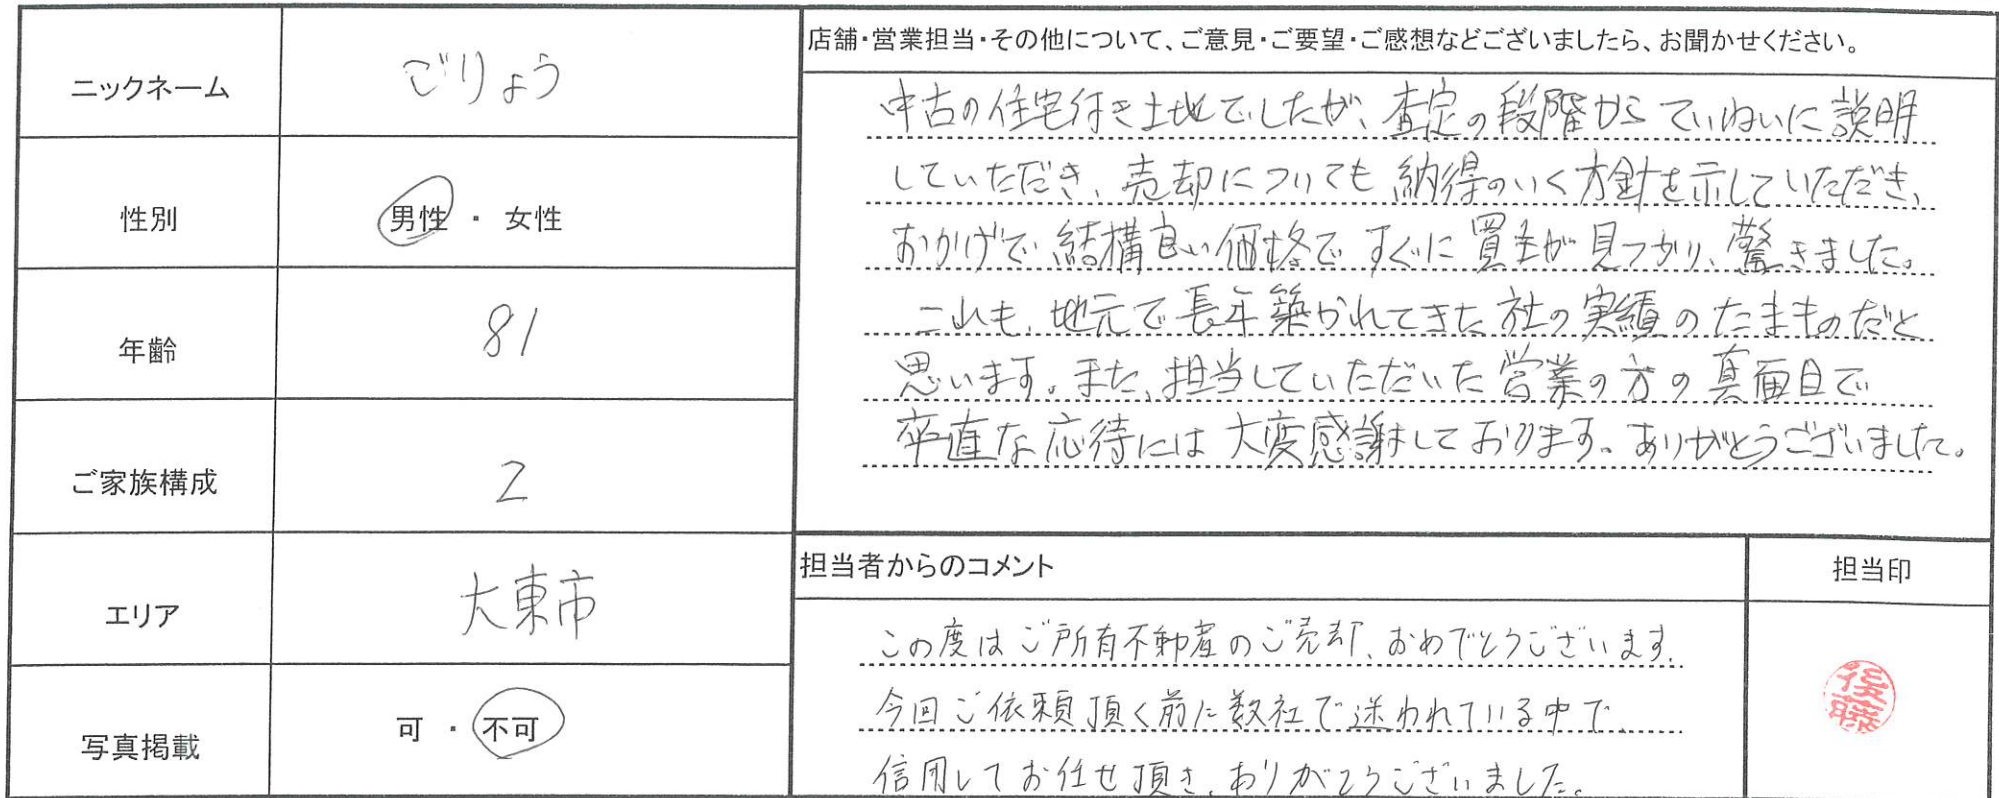 ニックネーム ごりょう
性別 男性 ・ 女性
年齢 81
ご家族構成 2
エリア 大東市
写真掲載 可 ・ 不可
店舗・営業担当・その他について、ご意見・ご要望・ご感想などございましたら、お聞かせください。
中古の住宅付き土地でしたが、査定の段階からていねいに説明
していただき、売却についても納得のいく方針を示していただき、
おかげで結構良い価格ですぐに買主が見つかり、驚きました。
これも、地元で長年築かれてきた社の実績のたまものだと
思います。また、担当していただいた営業の方の真面目で
率直な応待には大変感謝しております。ありがとうございました。
担当者からのコメント
この度はご所有不動産のご売却、おめでとうございます。
今回ご依頼頂く前に数社で迷われている中で、
信用してお任せ頂き、ありがとうございました。
担当印
後藤